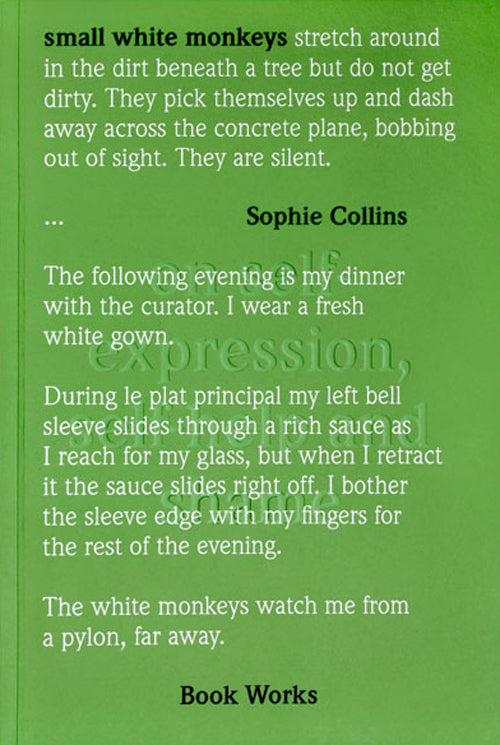 small white monkeys stretch around
in the dirt beneath a tree but do not get
dirty. They pick themselves up and dash
away across the concrete plane, bobbing
out of sight. They are silent.
... Sophie Collins
on self-
The following evening is my dinner
with the curator. I wear a fresh
white gown.
expression,
During le plat principal my left bell
sleeve slides through a rich sauce as
self-help and
I reach for my glass, but when I retract
it the sauce slides right off. I bother
shame
the sleeve edge with my fingers for
the rest of the evening.
The white monkeys watch me from
a pylon, far away.
Book Works